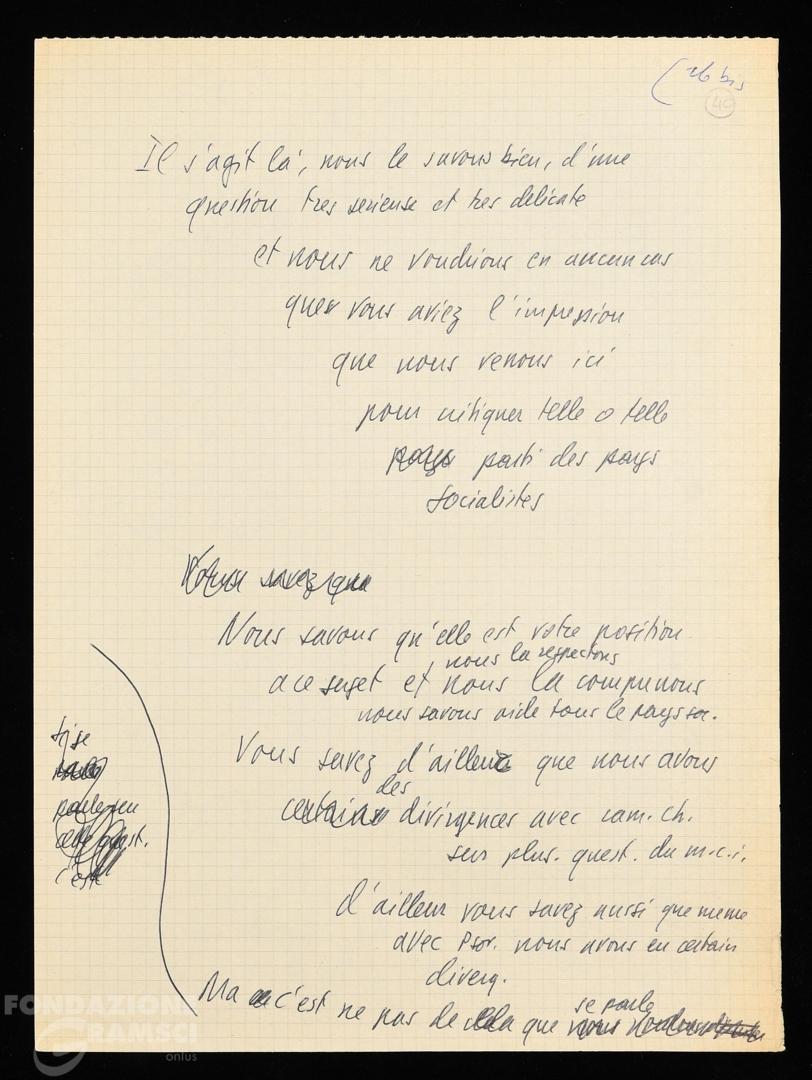 26 bis
40
Il s'agit là, nous le savons bien, d'une
question tres serieuse et tres delicate
et nous ne voudrions en aucun cas
que vous aviez l'impression
que nous venons ici
pour critiquer telle o telle
pays parti des pays
socialistes
savez que
Nous savons qu'elle est votre position
nous la respectons
a ce suget et nous la comprenons
nous savons aide tous le pays soc.
Vous savez d'ailleur que nous avons
des
certains divirgences avec cam. ch.
sur plus. quest. du m.c.i.
d'ailleur vous savez aussi que meme
avec Psov. nous avons eu certain
diverg.
si je
parle
cette quest.
c'est
Ma c'est ne pas de cela que
se parle
FONDAZIONE
GRAMSCI
onlus